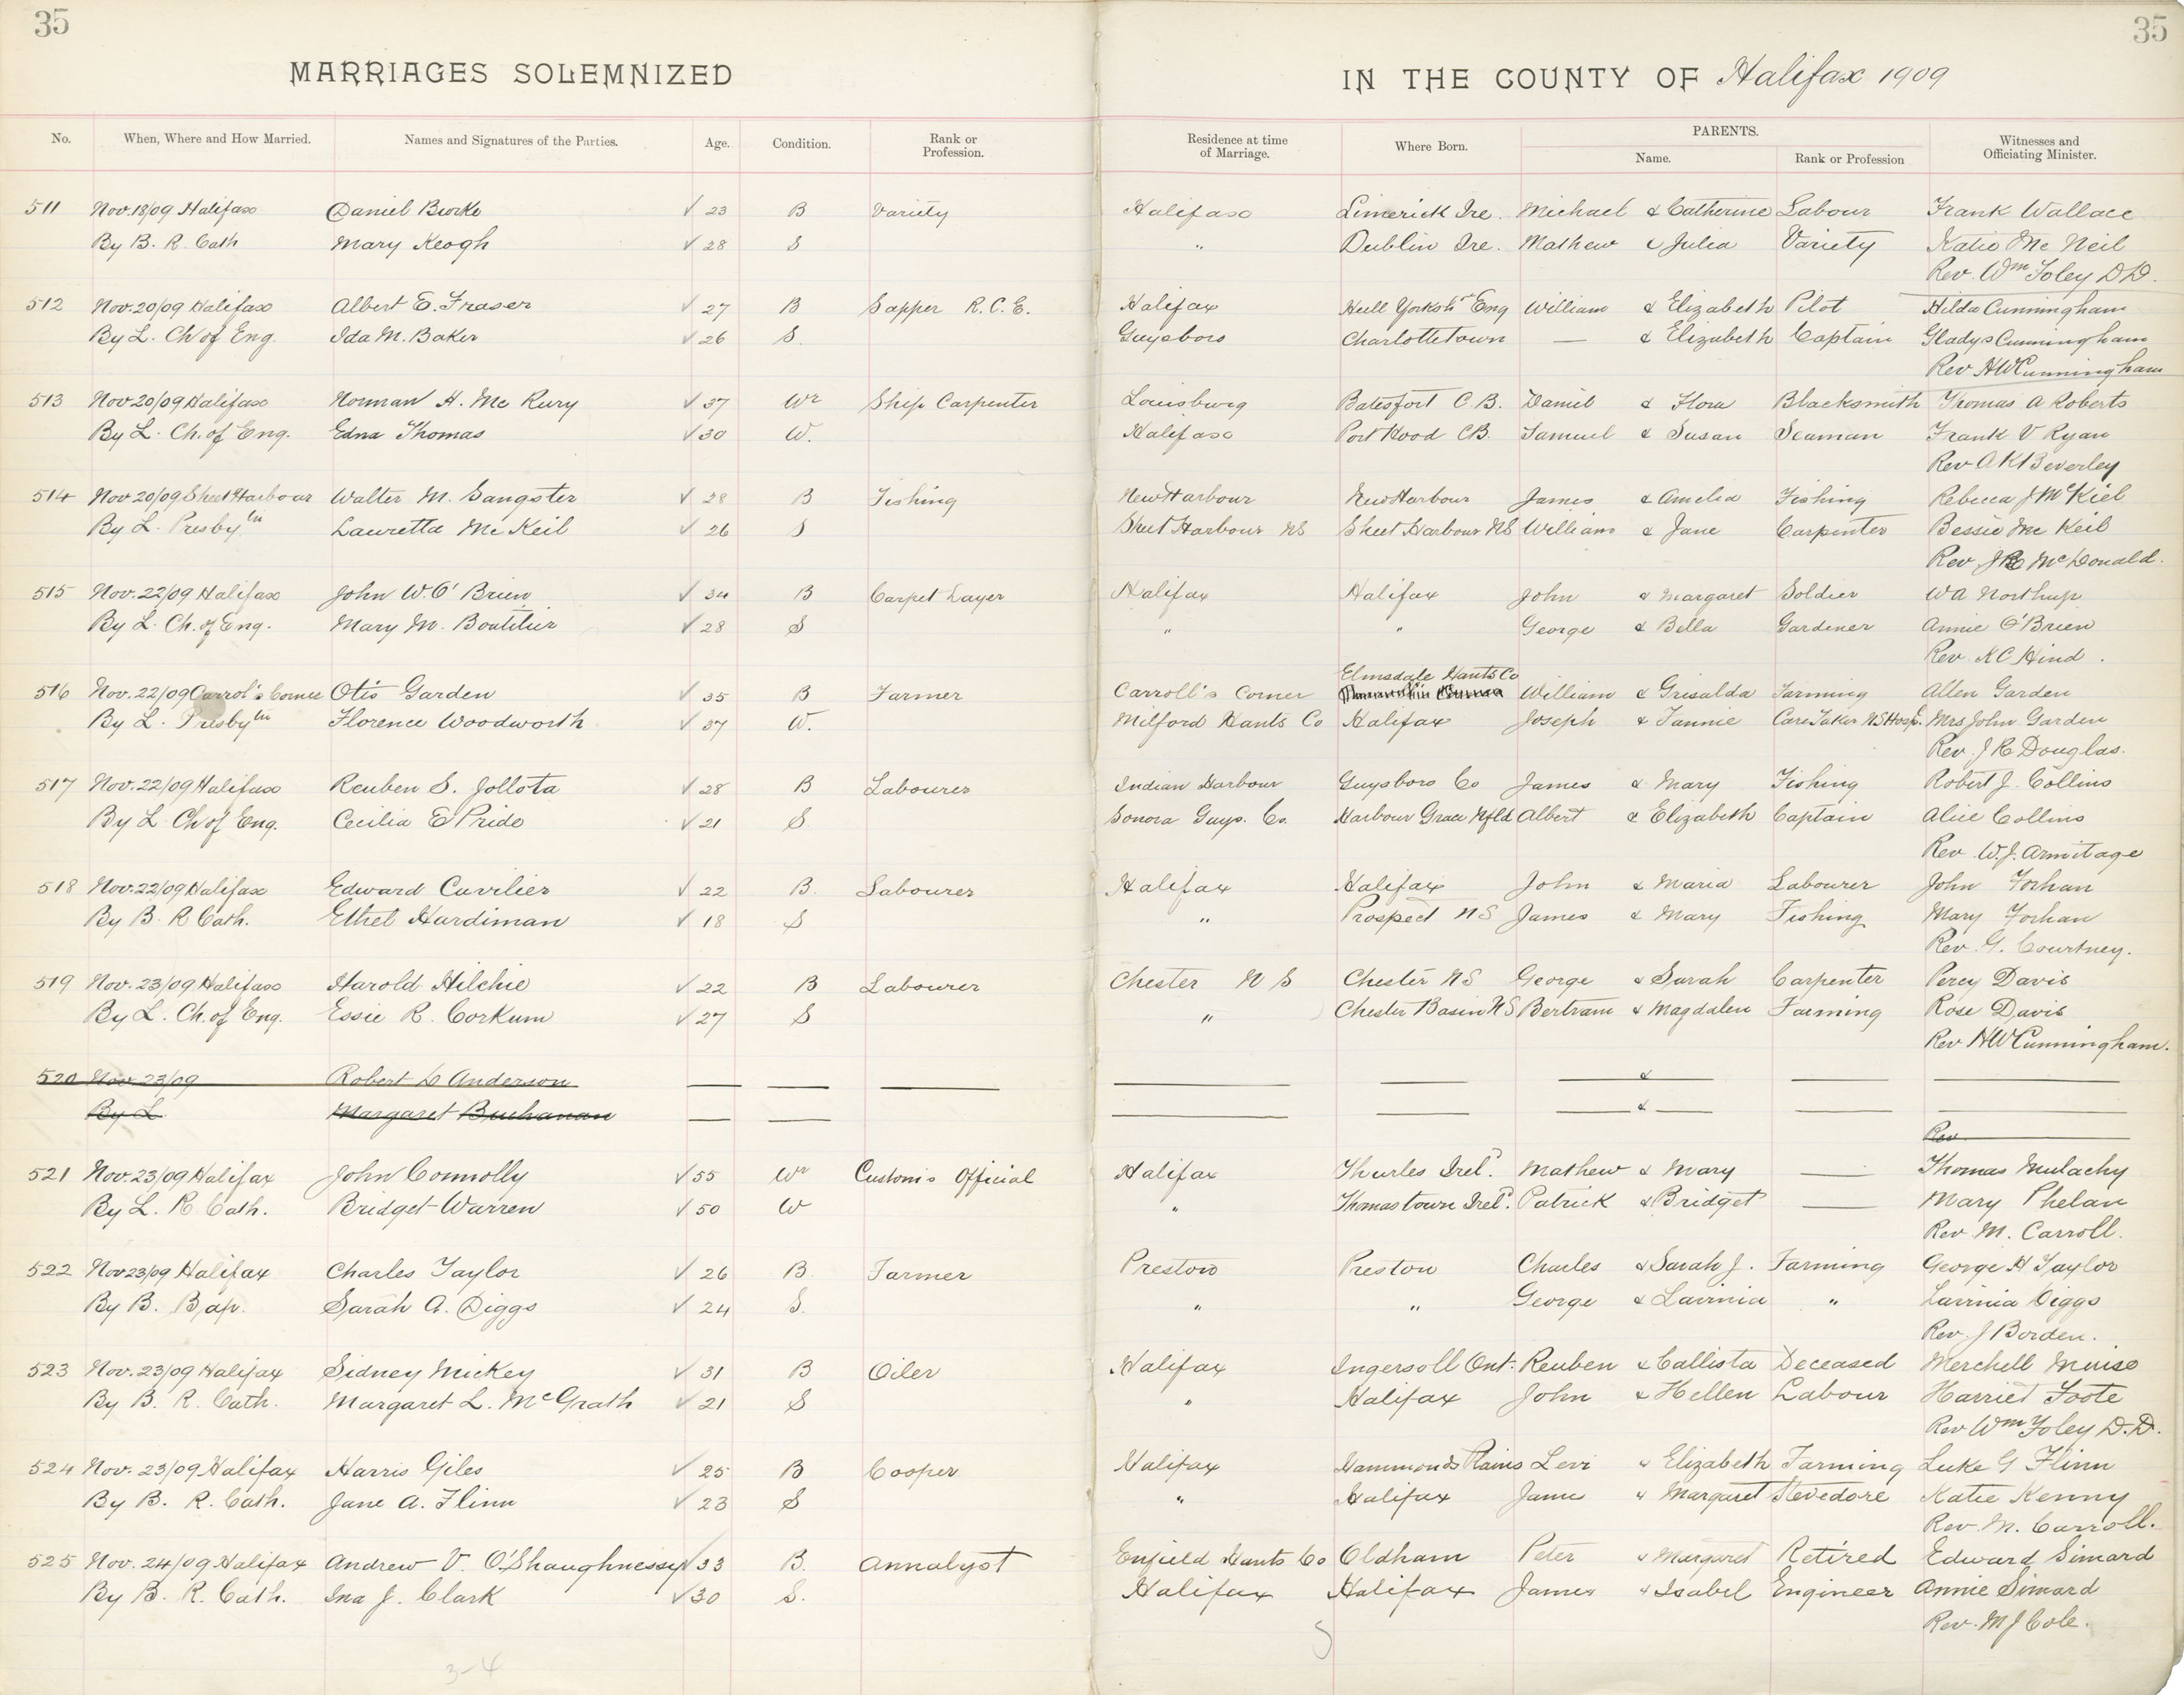 35 35
MARRIAGES SOLEMNIZED IN THE COUNTY OF Halifax 1909
No. When, Where and How Married. Names and Signatures of the Parties. Age. Condition. Rank or Profession. Residence at time of Marriage. Where Born. PARENTS. Name. Rank or Profession Witnesses and Officiating Minister.
511 Nov. 18/09 Halifax Daniel Burke √ 23 B Variety Halifax Limerick Ire. Michael & Catherine Labour Frank Wallace
By B. R. Cath Mary Keogh √ 28 S " Dublin Ire. Mathew & Julia Variety Katie Mc Neil
Rev. Wm Foley D.D.
512 Nov. 20/09 Halifax Albert E. Fraser √ 27 B Sapper R.C.E. Halifax Hull Yorksh Eng William & Elizabeth Pilot Hilda Cunningham
By L. Ch of Eng. Ida M. Baker √ 26 S. Guysboro Charlottetown — & Elizabeth Captain Gladys Cunningham
Rev HW Cunningham
513 Nov 20/09 Halifax Norman H. Mc Rury √ 37 Wr Ship Carpenter Louisburg Batesfort C.B. Daniel & Flora Blacksmith Thomas A Roberts
By L. Ch. of Eng. Edna Thomas √ 30 W. Halifax Port Hood CB. Samuel & Susan Seaman Frank V Ryan
Rev A K Beverley
514 Nov 20/09 Sheet Harbour Walter M. Sangster √ 28 B Fishing New Harbour New Harbour James & Amelia Fishing Rebecca J McKiel
By L. Presbytn Lauretta Mc Keil √ 26 S Sheet Harbour NS Sheet Harbour NS William & Jane Carpenter Bessie Mc Keil
Rev McDonald.
515 Nov. 22/09 Halifax John W. O'Brien √ 34 B Carpet Layer Halifax Halifax John & Margaret Soldier W A Northup
By L. Ch. of Eng. Mary M. Boutilier √ 28 S " " George & Bella Gardener Annie O'Brien
Rev. K C Hind.
Elmsdale Hants Co
516 Nov. 22/09 Carrol's Corner Otis Garden √ 35 B Farmer Carroll's Corner William & Grisalda Farming Allen Garden
By L. Presbytn Florence Woodworth √ 37 W. Milford Hants Co Halifax Joseph & Fannie Care Taker N S Hosp. Mrs John Garden
Rev. J R Douglas.
517 Nov. 22/09 Halifax Reuben S. Jollota √ 28 B Labourer Indian Harbour Guysboro Co James & Mary Fishing Robert J. Collins
By L Ch of Eng. Cecilia E Pride √ 21 S Sonora Guys. Co. Harbour Grace Nfld Albert & Elizabeth Captain Alice Collins
Rev W.J. Armitage
518 Nov. 22/09 Halifax Edward Cuvilier √ 22 B. Labourer Halifax Halifax John & Maria Labourer John Forhan
By B. R Cath. Ethel Hardiman √ 18 S " Prospect N S James & Mary Fishing Mary Forhan
Rev. G. Courtney.
519 Nov. 23/09 Halifax Harold Hilchie √ 22 B Labourer Chester N S Chester N S George & Sarah Carpenter Percy Davis
By L. Ch. of Eng. Essie R. Corkum √ 27 S " Chester Basin N S Bertram & Magdalen Farming Rose Davis
Rev HW Cunningham.
520 Nov 23/09 Robert L Anderson — — — — — & — —
By L Margaret Buchanan — — — — & — —
Rev
521 Nov. 23/09 Halifax John Connolly √ 55 Wr Customs Official Halifax Thurles Ireld. Mathew & Mary — Thomas Mulachy
By L. R Cath. Bridget Warren √ 50 W " Thomastown Ireld. Patrick & Bridget — Mary Phelan
Rev M. Carroll.
522 Nov 23/09 Halifax Charles Taylor √ 26 B Farmer Preston Preston Charles & Sarah J. Farming George H Taylor
By B. Bap. Sarah A. Diggs √ 24 S. " " George & Lavinia " Lavinia Diggs
Rev. J Borden.
523 Nov. 23/09 Halifax Sidney Mickey √ 31 B Oiler Halifax Ingersoll Ont. Reuben & Callista Deceased Merchell Muise
By B. R. Cath. Margaret L. McGrath √ 21 S " Halifax John & Hellen Labour Harriet Foote
Rev Wm Foley D.D.
524 Nov. 23/09 Halifax Harris Giles √ 25 B Cooper Halifax Hammonds Plains Levi & Elizabeth Farming Luke G Flinn
By B. R. Cath. Jane A. Flinn √ 23 S " Halifax James & Margaret Stevedore Katie Kenny
Rev. M. Carroll.
525 Nov. 24/09 Halifax Andrew V. O'Shaughnessy √ 33 B. Annalyst Enfield Hants Co Oldham Peter & Margaret Retired Edward Simard
By B. R. Cath. Ina J. Clark √ 30 S. Halifax Halifax James & Isabel Engineer Annie Simard
Rev. M J Cole.
3-4